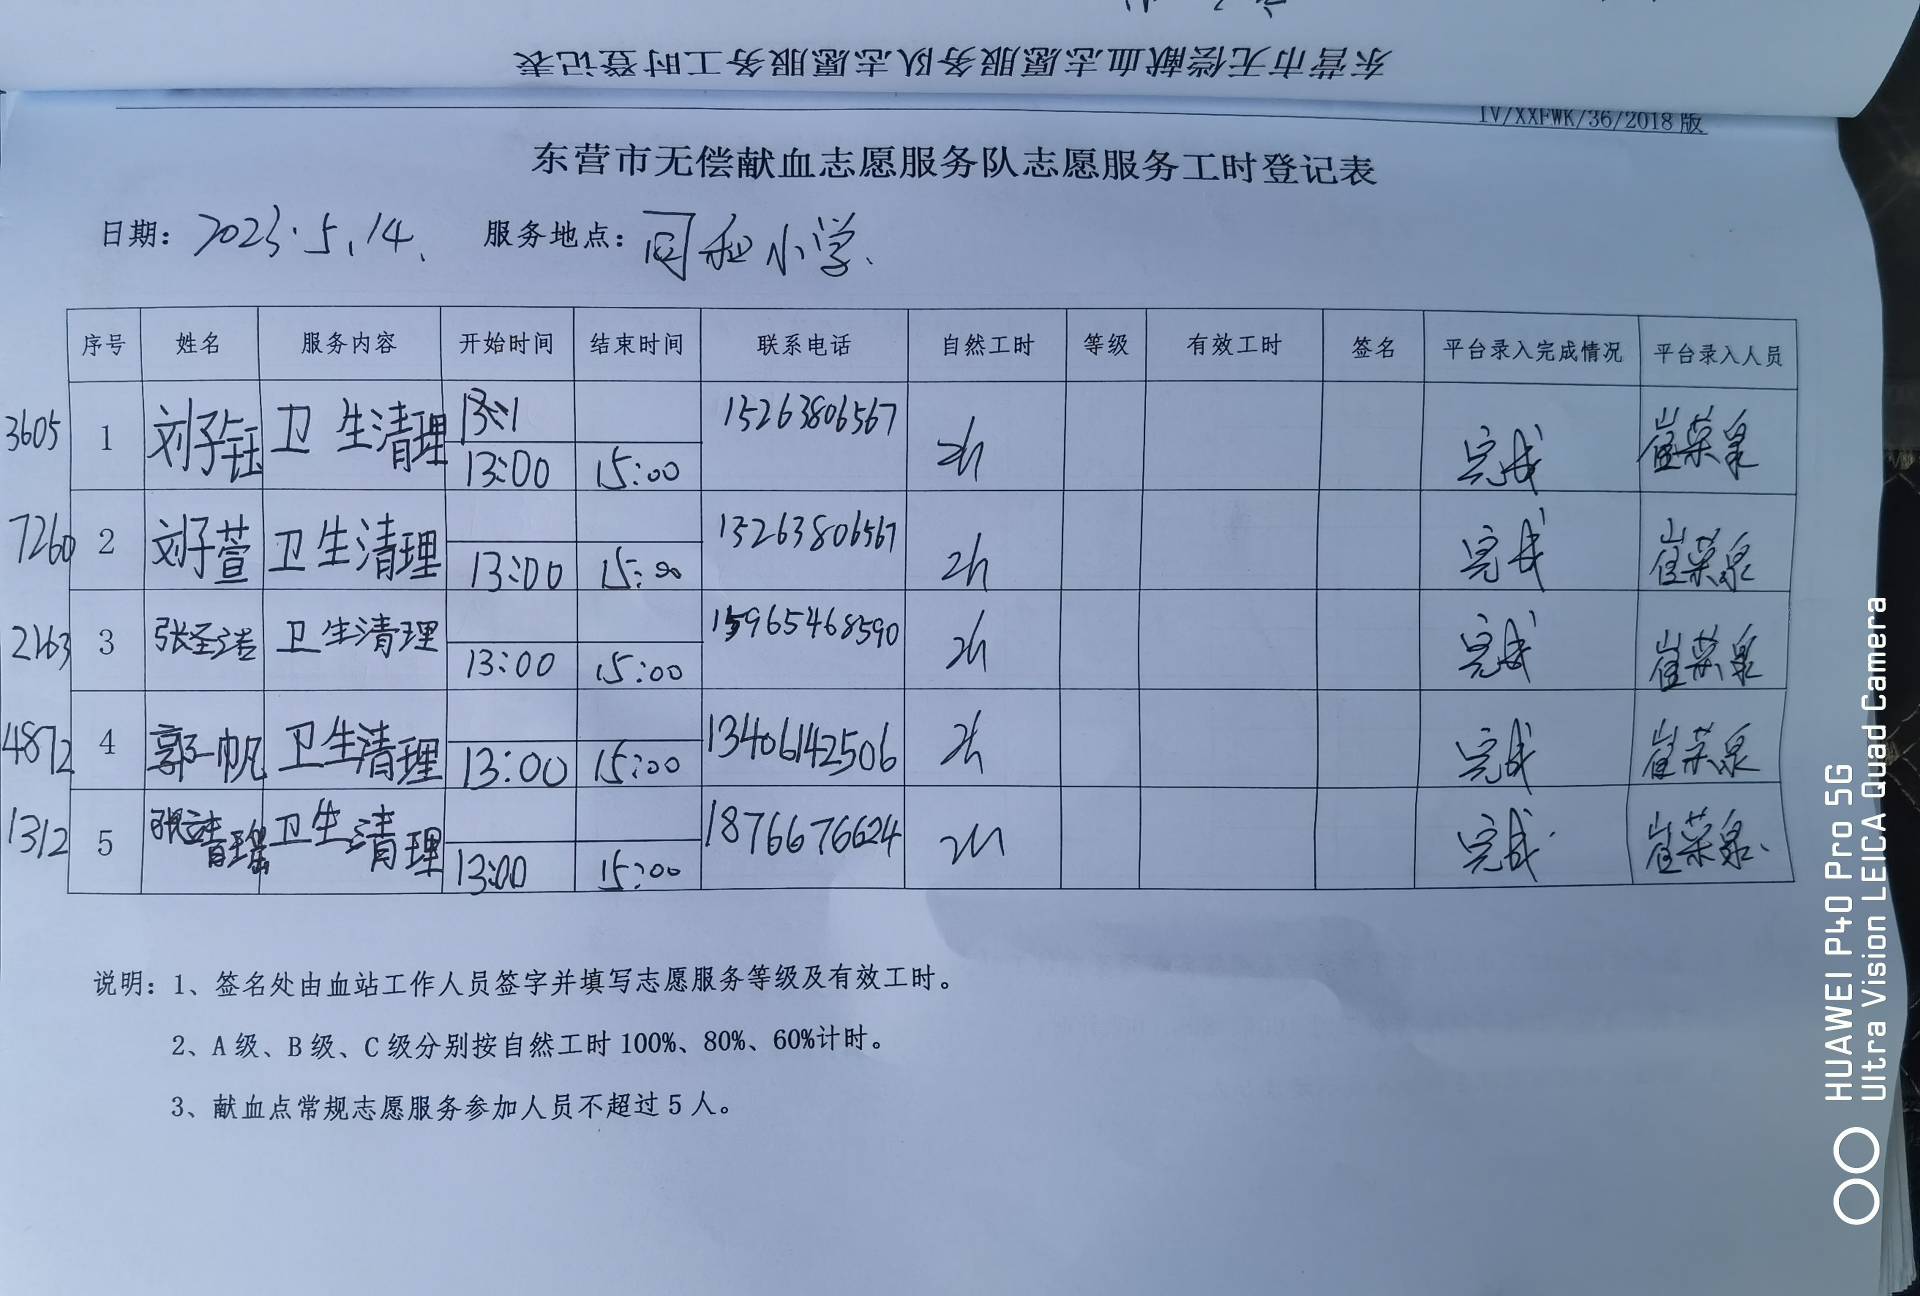 东营市无偿献血志愿服务队志愿服务工时登记表
IV/XXFWK/36/2018版
东营市无偿献血志愿服务队志愿服务工时登记表
日期: 2023.5.14. 服务地点: 同和小学.
序号 姓名 服务内容 开始时间 结束时间 联系电话 自然工时 等级 有效工时 签名 平台录入完成情况 平台录入人员
3605 1 刘子钰 卫生清理 13:00 15:00 15263806567 2h 完成 崔荣泉
7260 2 刘子萱 卫生清理 13:00 15:00 15263806567 2h 完成 崔荣泉
2163 3 卫生清理 13:00 15:00 15965468590 2h 完成 崔荣泉
4872 4 郭一帆 卫生清理 13:00 15:00 13406142506 2h 完成 崔荣泉
1312 5 卫生清理 13:00 15:00 18766676624 2h 完成. 崔荣泉.
说明: 1、签名处由血站工作人员签字并填写志愿服务等级及有效工时。
2、A级、B级、C级分别按自然工时100%、80%、60%计时。
3、献血点常规志愿服务参加人员不超过5人。
HUAWEI P40 Pro 5G
Ultra Vision LEICA Quad Camera